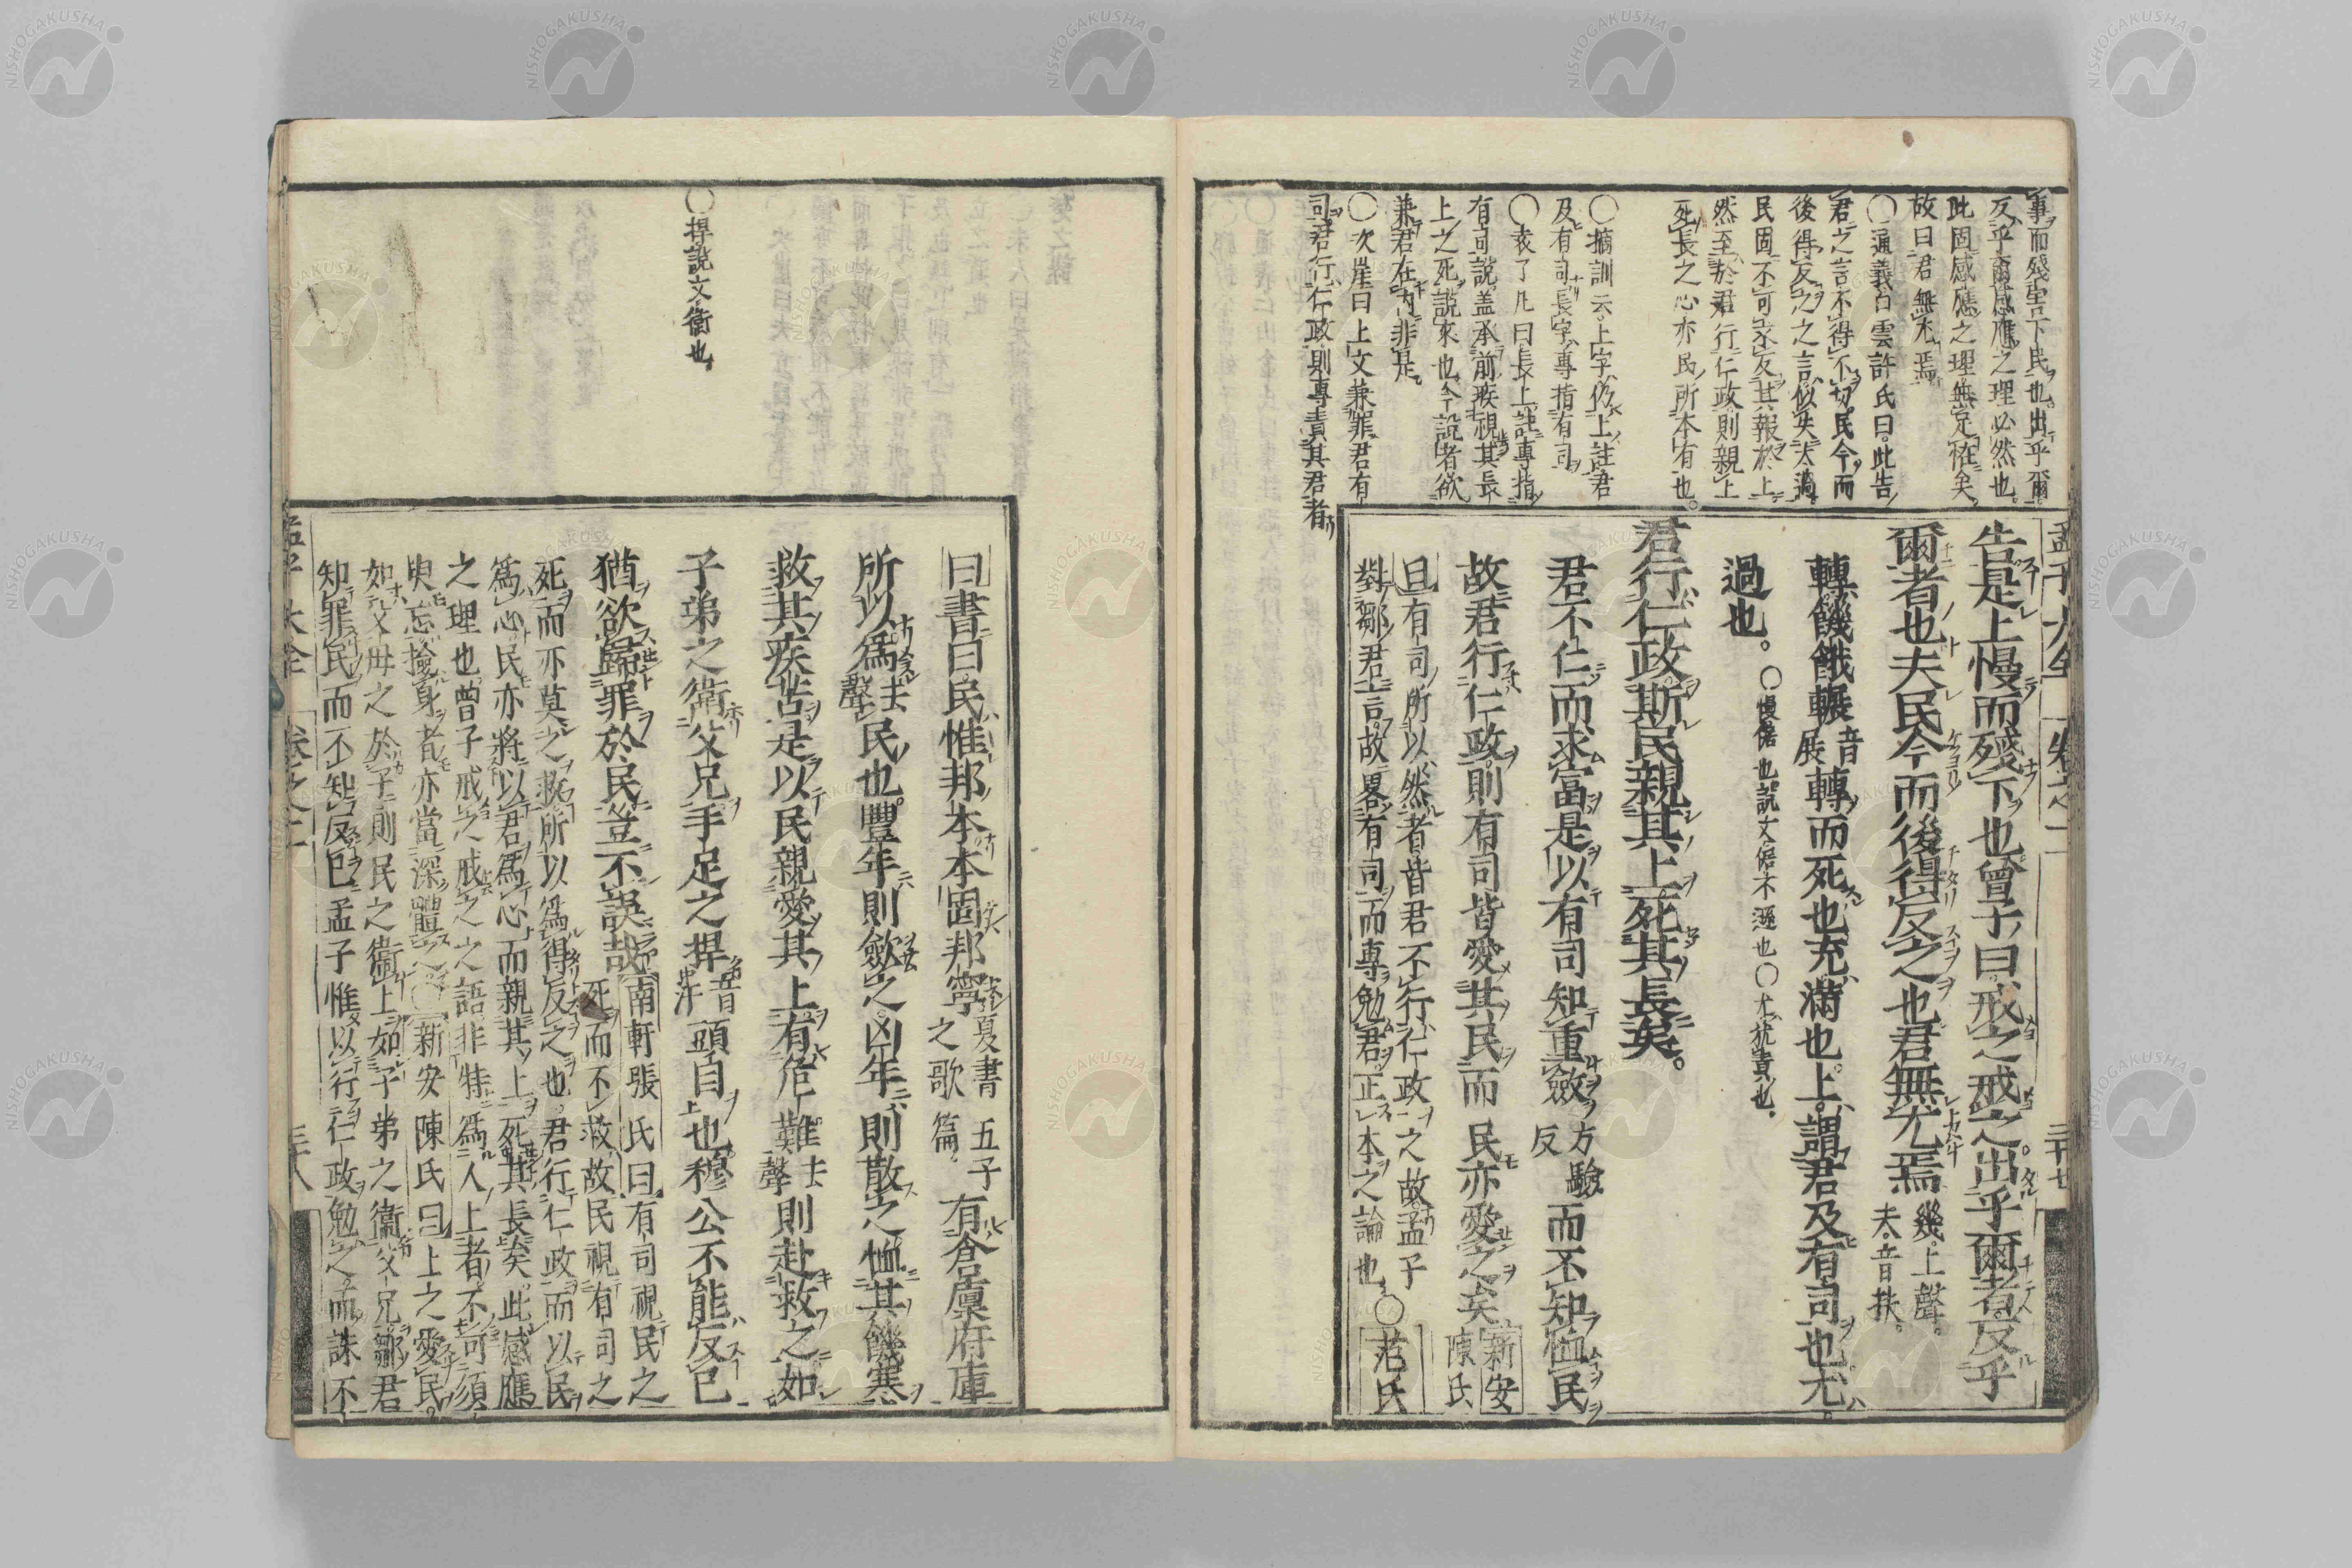 事而殘害下民也出乎爾
反乎爾感應之理必然也
此固感應之理無定在矣
故曰君無尤焉
○通義白雲許氏曰此告
君之言不得不切民今而
後得反之之言似失太過
民固不可求反其報於上
然至於君行仁政則親上
死長之心亦民所本有也
○摘訓云上字仍上註君
及有司長字專指有司
○袁了凡曰長上註專指
有司說蓋承前疾視其長
上之死說來也今說者欲
兼君在內非是
○次崖曰上文兼罪君有
司君行仁政則專責其君者
孟子大全 卷之二 三十七
告是上慢而殘下也曾子曰戒之戒之出乎爾者反乎
爾者也夫民今而後得反之也君無尤焉 幾上聲 夫音扶
轉饑餓輾音展轉而死也充滿也上謂君及有司也尤
過也○慢倨也說文倨不遜也○尤抗責也
君行仁政斯民親其上死其長矣
君不仁而求富是以有司知重斂力驗反而不知恤民
故君行仁政則有司皆愛其民而民亦愛之矣 新安陳氏
曰有司所以然者皆君不行仁政之故孟子
對鄒君言故畧有司而專勉君正本之論也○范氏
曰書曰民惟邦本本固邦寧夏書五子之歌篇有倉廩府庫
所以爲去聲民也豐年則斂之凶年則散之恤其饑寒
救其疾苦是以民親愛其上有危難去聲則赴救之如
子弟之衛父兄手足之捍音汗頭目也穆公不能反己
猶欲歸罪於民豈不誤哉 南軒張氏曰有司視民之
死而不救故民視有司之
死而亦莫之救所以爲得反之也君行仁政而以民
爲心民亦將以君爲心而親其上死其長矣此感應
之理也曾子戒之戒之之語非特爲人上者不可須
臾忘撿身者亦當深體之○新安陳氏曰上之愛民
如父母之於子則民之衛上如子弟之衛父兄鄒君
知罪民而不知反己孟子惟以行仁政勉之而誅不
孟子大全 卷之二 三十八
○捍說文衛也